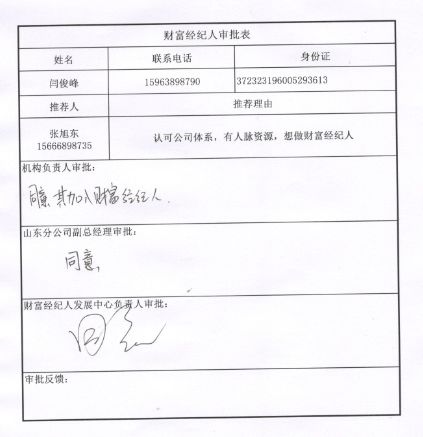 财富经纪人审批表
姓名 联系电话 身份证
闫俊峰 15963898790 372323196005293613
推荐人 推荐理由
张旭东
15666898735 认可公司体系，有人脉资源，想做财富经纪人
机构负责人审批：
同意其加入财富经纪人.
山东分公司副总经理审批：
同意
财富经纪人发展中心负责人审批：
同意
审批反馈：